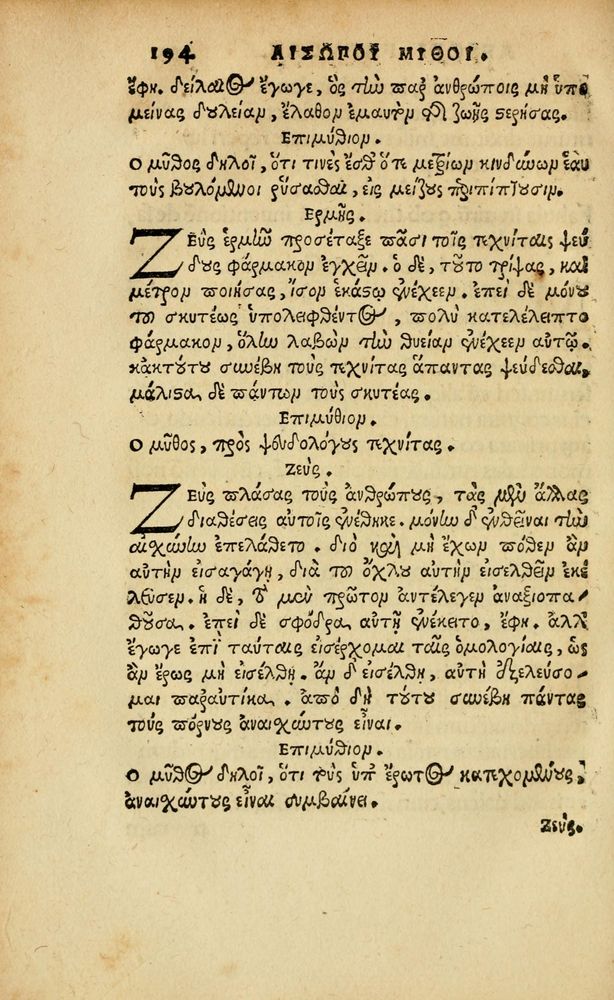 194 ΑΙΣΩΠΟΥ ΜΙΘΟΙ.
ἔφη. δείλαιος ἔγωγε, ὃς τὴν παρ' ἀνθρώποις μὴ ὑπο
μείνας δουλείαν, ἔλαθον ἐμαυτὸν καὶ ζωῆς στερήσας.
Επιμύθιον.
Ο μῦθος δηλοῖ, ὅτι τινὲς ἔσθ' ὅτε μετρίων κινδύνων ἑαυ
τοὺς βουλόμενοι ῥύσασθαι, εἰς μείζους περιπίπτουσιν.
Ερμῆς.
ΖΕὺς ἑρμῇ προσέταξε πᾶσι τοῖς τεχνίταις ψεύ
δους φάρμακον ἐγχεῖν. ὁ δὲ, τοῦτο τρίψας, καὶ
μέτρον ποιήσας, ἴσον ἑκάστῳ ἐνέχεεν. ἐπεὶ δὲ μόνου
τοῦ σκυτέως ὑπολειφθέντος, πολὺ κατελέλειπτο
φάρμακον, ὅλην λαβὼν τὴν θυείαν ἐνέχεεν αὐτῷ.
κἀκ τούτου συνέβη τοὺς τεχνίτας ἅπαντας ψεύδεσθαι,
μάλιστα δὲ πάντων τοὺς σκυτέας.
Επιμύθιον.
Ο μῦθος, πρὸς ψευδολόγους τεχνίτας.
Ζεύς.
ΖΕὺς πλάσας τοὺς ἀνθρώπους, τὰς μὲν ἄλλας
διαθέσεις αὐτοῖς ἐνέθηκε. μόνην δ' ἐνθεῖναι τὴν
αἰσχύνην ἐπελάθετο. διὸ καὶ μὴ ἔχων πόθεν ἂν
αὐτὴν εἰσαγάγῃ, διὰ τοῦ ὄχλου αὐτὴν εἰσελθεῖν ἐκέ
λευσεν. ἡ δὲ, τὸ μὲν πρῶτον ἀντέλεγεν ἀναξιοπα/
θοῦσα. ἐπεὶ δὲ σφόδρα αὐτῇ ἐνέκειτο, ἔφη. ἀλλ'
ἔγωγε ἐπὶ ταύταις εἰσέρχομαι ταῖς ὁμολογίαις, ὡς
ἂν ἔρως μὴ εἰσέλθῃ. ἂν δ' εἰσέλθῃ, αὐτὴ ἐξελεύσο/
μαι παραυτίκα. ἀπὸ δὴ τούτου συνέβη πάντας
τοὺς πόρνους ἀναισχύντους εἶναι.
Επιμύθιον.
Ο μῦθος δηλοῖ, ὅτι τοὺς ὑπ' ἔρωτος κατεχομένους,
ἀναισχύντους εἶναι συμβαίνει.
Ζεύς.